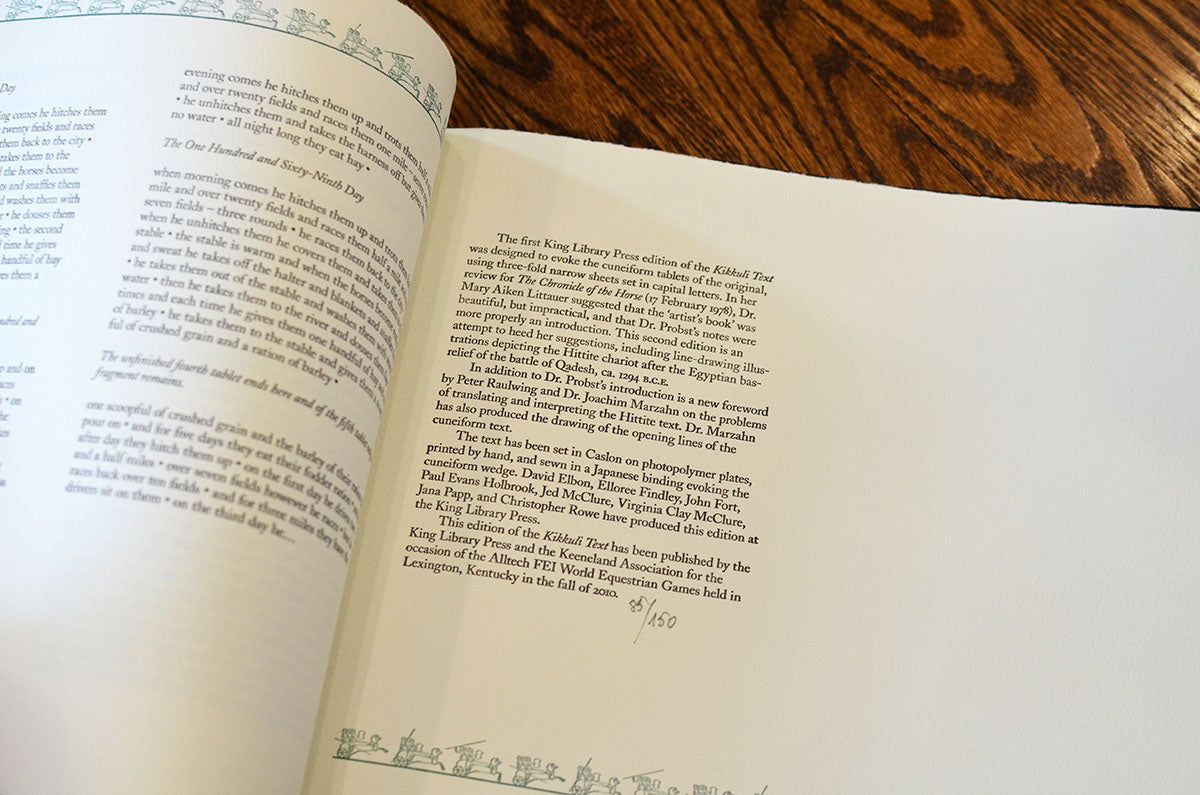 Day
ng comes he hitches them
twenty fields and races
them back to the city •
takes them to the
the horses become
ts and snaffles them
washes them with
• he douses them
ng • the second
time he gives
handful of hay
ves them a
ndred and
p and on
aces
• on
he
kes
evening comes he hitches them up and trots them half a
and over twenty fields and races them one mile – seven
• he unhitches them and takes the harness off but gives
no water • all night long they eat hay •
The One Hundred and Sixty-Ninth Day
when morning comes he hitches them up and trots them
mile and over twenty fields and races them half a mile
seven fields – three rounds • he races them back to the
when he unhitches them he covers them and takes them
stable • the stable is warm and when the horses become
and sweat he takes off the halter and blankets and
• he takes them out of the stable and washes them with
water • then he takes them to the river and douses them
times and each time he gives them one handful of hay and
of barley • he takes them to the stable and gives them
ful of crushed grain and a ration of barley •
The unfinished fourth tablet ends here and of the fifth tablet
fragment remains.
one scoopful of crushed grain and the barley of their
pour on • and for five days they eat their fodder
after day they hitch them up • on the first day he drives
and a half miles • over seven fields however he
races back over ten fields • and for three miles they have
drivers sit on them • on the third day he...
The first King Library Press edition of the Kikkuli Text
was designed to evoke the cuneiform tablets of the original,
using three-fold narrow sheets set in capital letters. In her
review for The Chronicle of the Horse (17 February 1978), Dr.
Mary Aiken Littauer suggested that the ‘artist’s book’ was
beautiful, but impractical, and that Dr. Probst’s notes were
more properly an introduction. This second edition is an
attempt to heed her suggestions, including line-drawing illus-
trations depicting the Hittite chariot after the Egyptian bas-
relief of the battle of Qadesh, ca. 1294 B.C.E.
In addition to Dr. Probst’s introduction is a new foreword
by Peter Raulwing and Dr. Joachim Marzahn on the problems
of translating and interpreting the Hittite text. Dr. Marzahn
has also produced the drawing of the opening lines of the
cuneiform text.
The text has been set in Caslon on photopolymer plates,
printed by hand, and sewn in a Japanese binding evoking the
cuneiform wedge. David Elbon, Elloree Findley, John Fort,
Paul Evans Holbrook, Jed McClure, Virginia Clay McClure,
Jana Papp, and Christopher Rowe have produced this edition at
the King Library Press.
This edition of the Kikkuli Text has been published by the
King Library Press and the Keeneland Association for the
occasion of the Alltech FEI World Equestrian Games held in
Lexington, Kentucky in the fall of 2010.
85/150